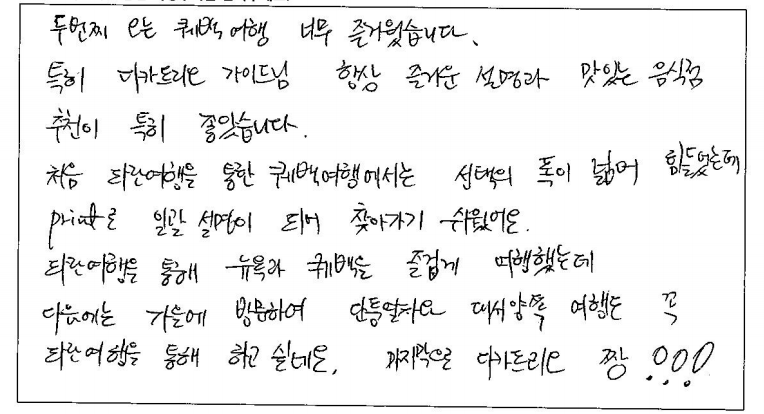 두번째 오는 퀘벡여행 너무 즐거웠습니다.
특히 다카트리오 가이드님 항상 즐거운 설명과 맛있는 음식점
추천이 특히 좋았습니다.
처음 파란여행을 통한 퀘백여행에서는 선택의 폭이 넓어 힘들었는데
print로 일괄 설명이 되어 찾아가기 쉬웠어요.
파란여행을 통해 뉴욕과 퀘백을 즐겁게 여행했는데
다음에는 가을에 방문하여 단풍열차요 대서양쪽 여행도 꼭
파란여행을 통해 하고 싶네요. 마지막으로 다카트리오 짱 !!!